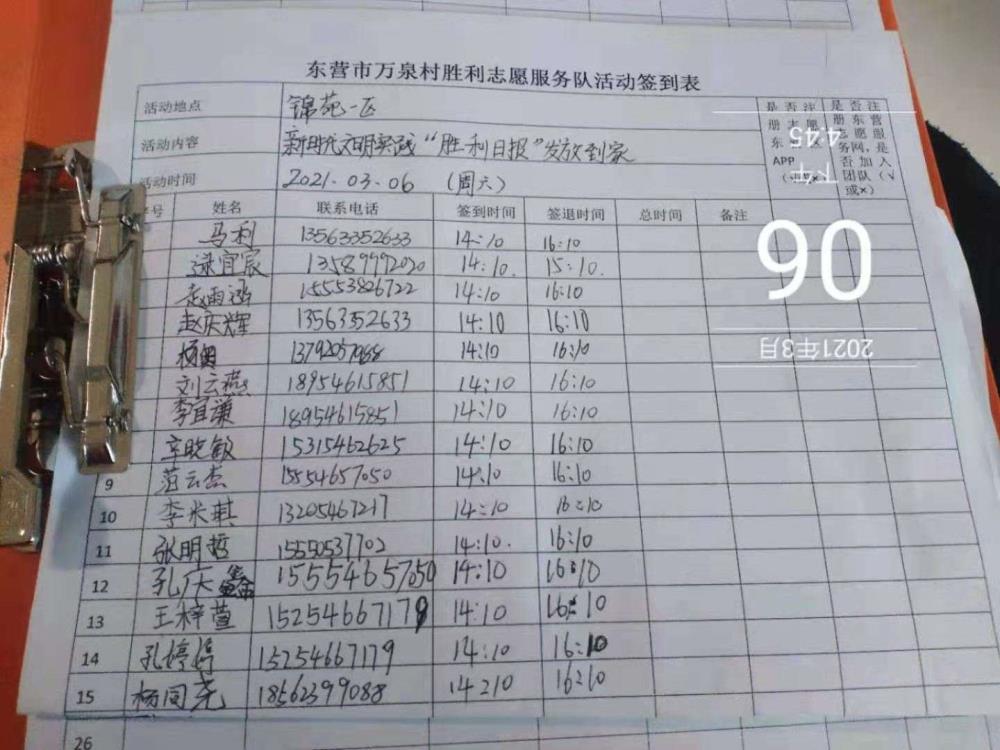 东营市万泉村胜利志愿服务队活动签到表
活动地点 锦苑一区
活动内容 新时代文明实践“胜利日报”发放到家
活动时间 2021.03.06 (周六)
是否注册志愿 APP
是否注册东营志愿服务网,是否加入团队(√或×)
下午 4:45
序号 姓名 联系电话 签到时间 签退时间 总时间 备注
马利 13563352633 14:10 16:10
逯宜宸 13589992020 14:10. 15:10.
赵雨涵 15553826722 14:10 16:10
赵庆辉 13563352633 14:10 16:10
14:10 16:10
刘云燕 18954615851 14:10 16:10
李宜谦 18954615851 14:10 16:10
辛晓敏 15315462625 14:10 16:10
9 范云杰 15554657050 14:10 16:10
10 李米琪 13205467217 14:10 16:10
11 张明哲 15550537702 14:10. 16:10
12 孔庆 15554657050 14:10 16:10
13 王梓萱 15254667179 14:10 16:10
14 孔婷婷 15254667179 14:10 16:10
15 杨同尧 18562399088 14:10 16:10
26
06
2021年3月